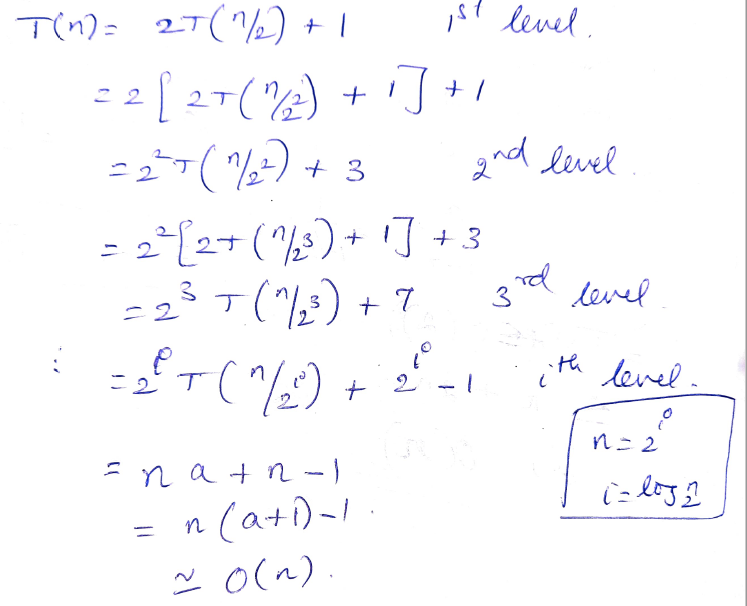 T(n) = 2T(n/2) + 1 1st level.
= 2[2T(n/2²) + 1] + 1
= 2²T(n/2²) + 3 2nd level.
= 2²[2T(n/2³) + 1] + 3
= 2³T(n/2³) + 7 3rd level
⋮ = 2ⁱT(n/2ⁱ) + 2ⁱ - 1 ith level.
n = 2ⁱ
i = log₂n
= n a + n - 1
= n(a+1) - 1.
≃ O(n).